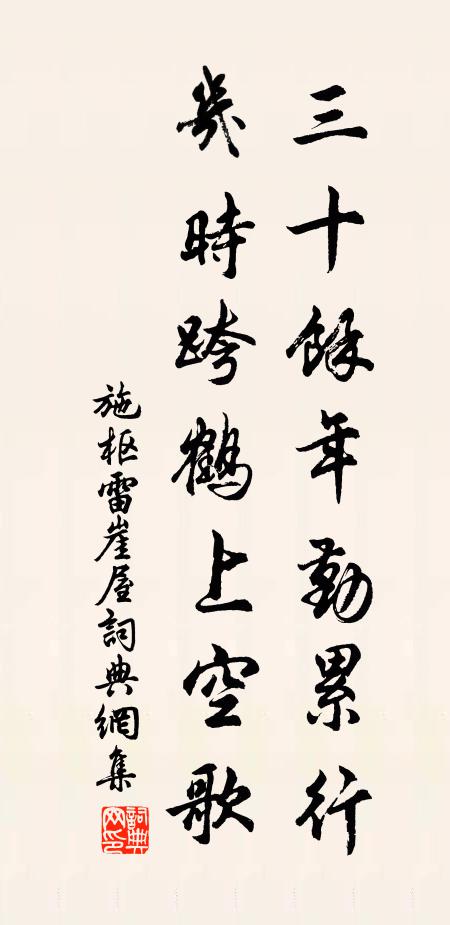 三十餘年勤累行
幾時跨鶴上空歌
施枢雷崖屋詞典網集
詞典网印